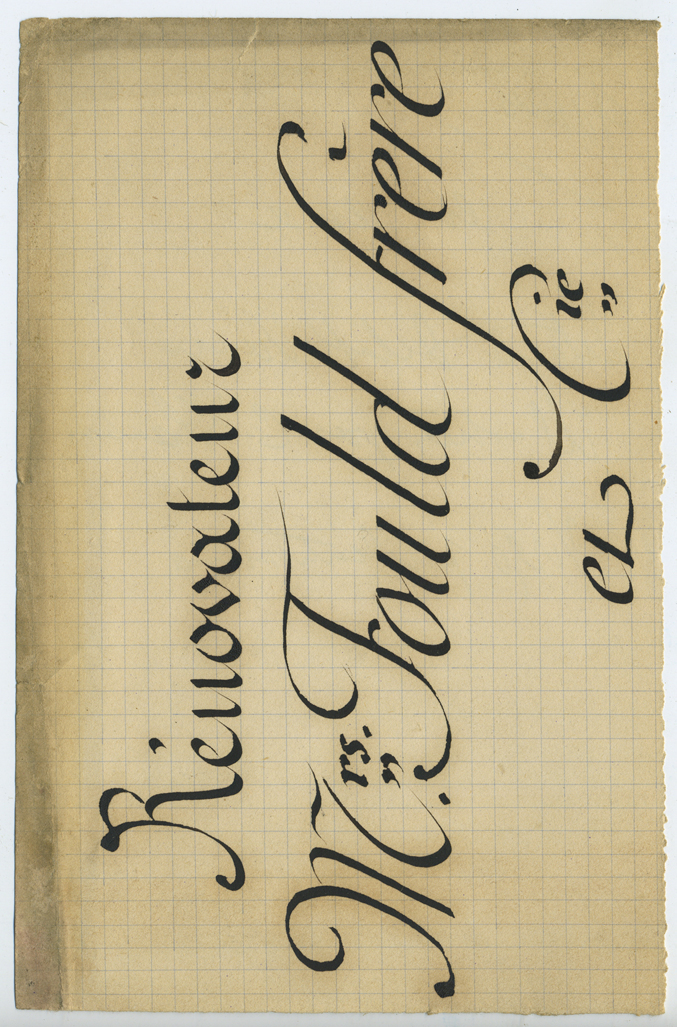 Rénovateur
M.rs. Fould frère
et Cie